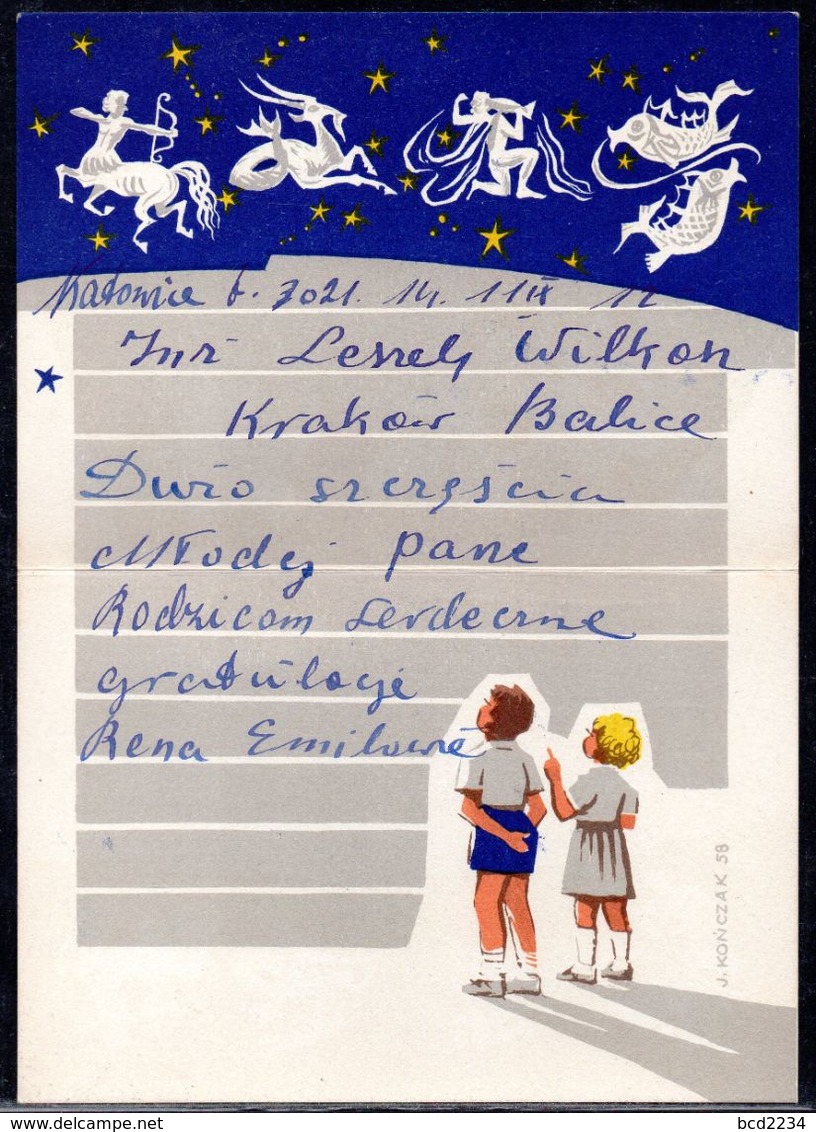 Katowice 6. 3021. 14. 11 IX 12
Inż Leszek Wilkosz
Kraków Balice
Dużo szczęścia
Młodej Parze
Rodzicom serdeczne
gratulacje
Rena Emilowie
J. KOŃCZAK 58
bcd2234